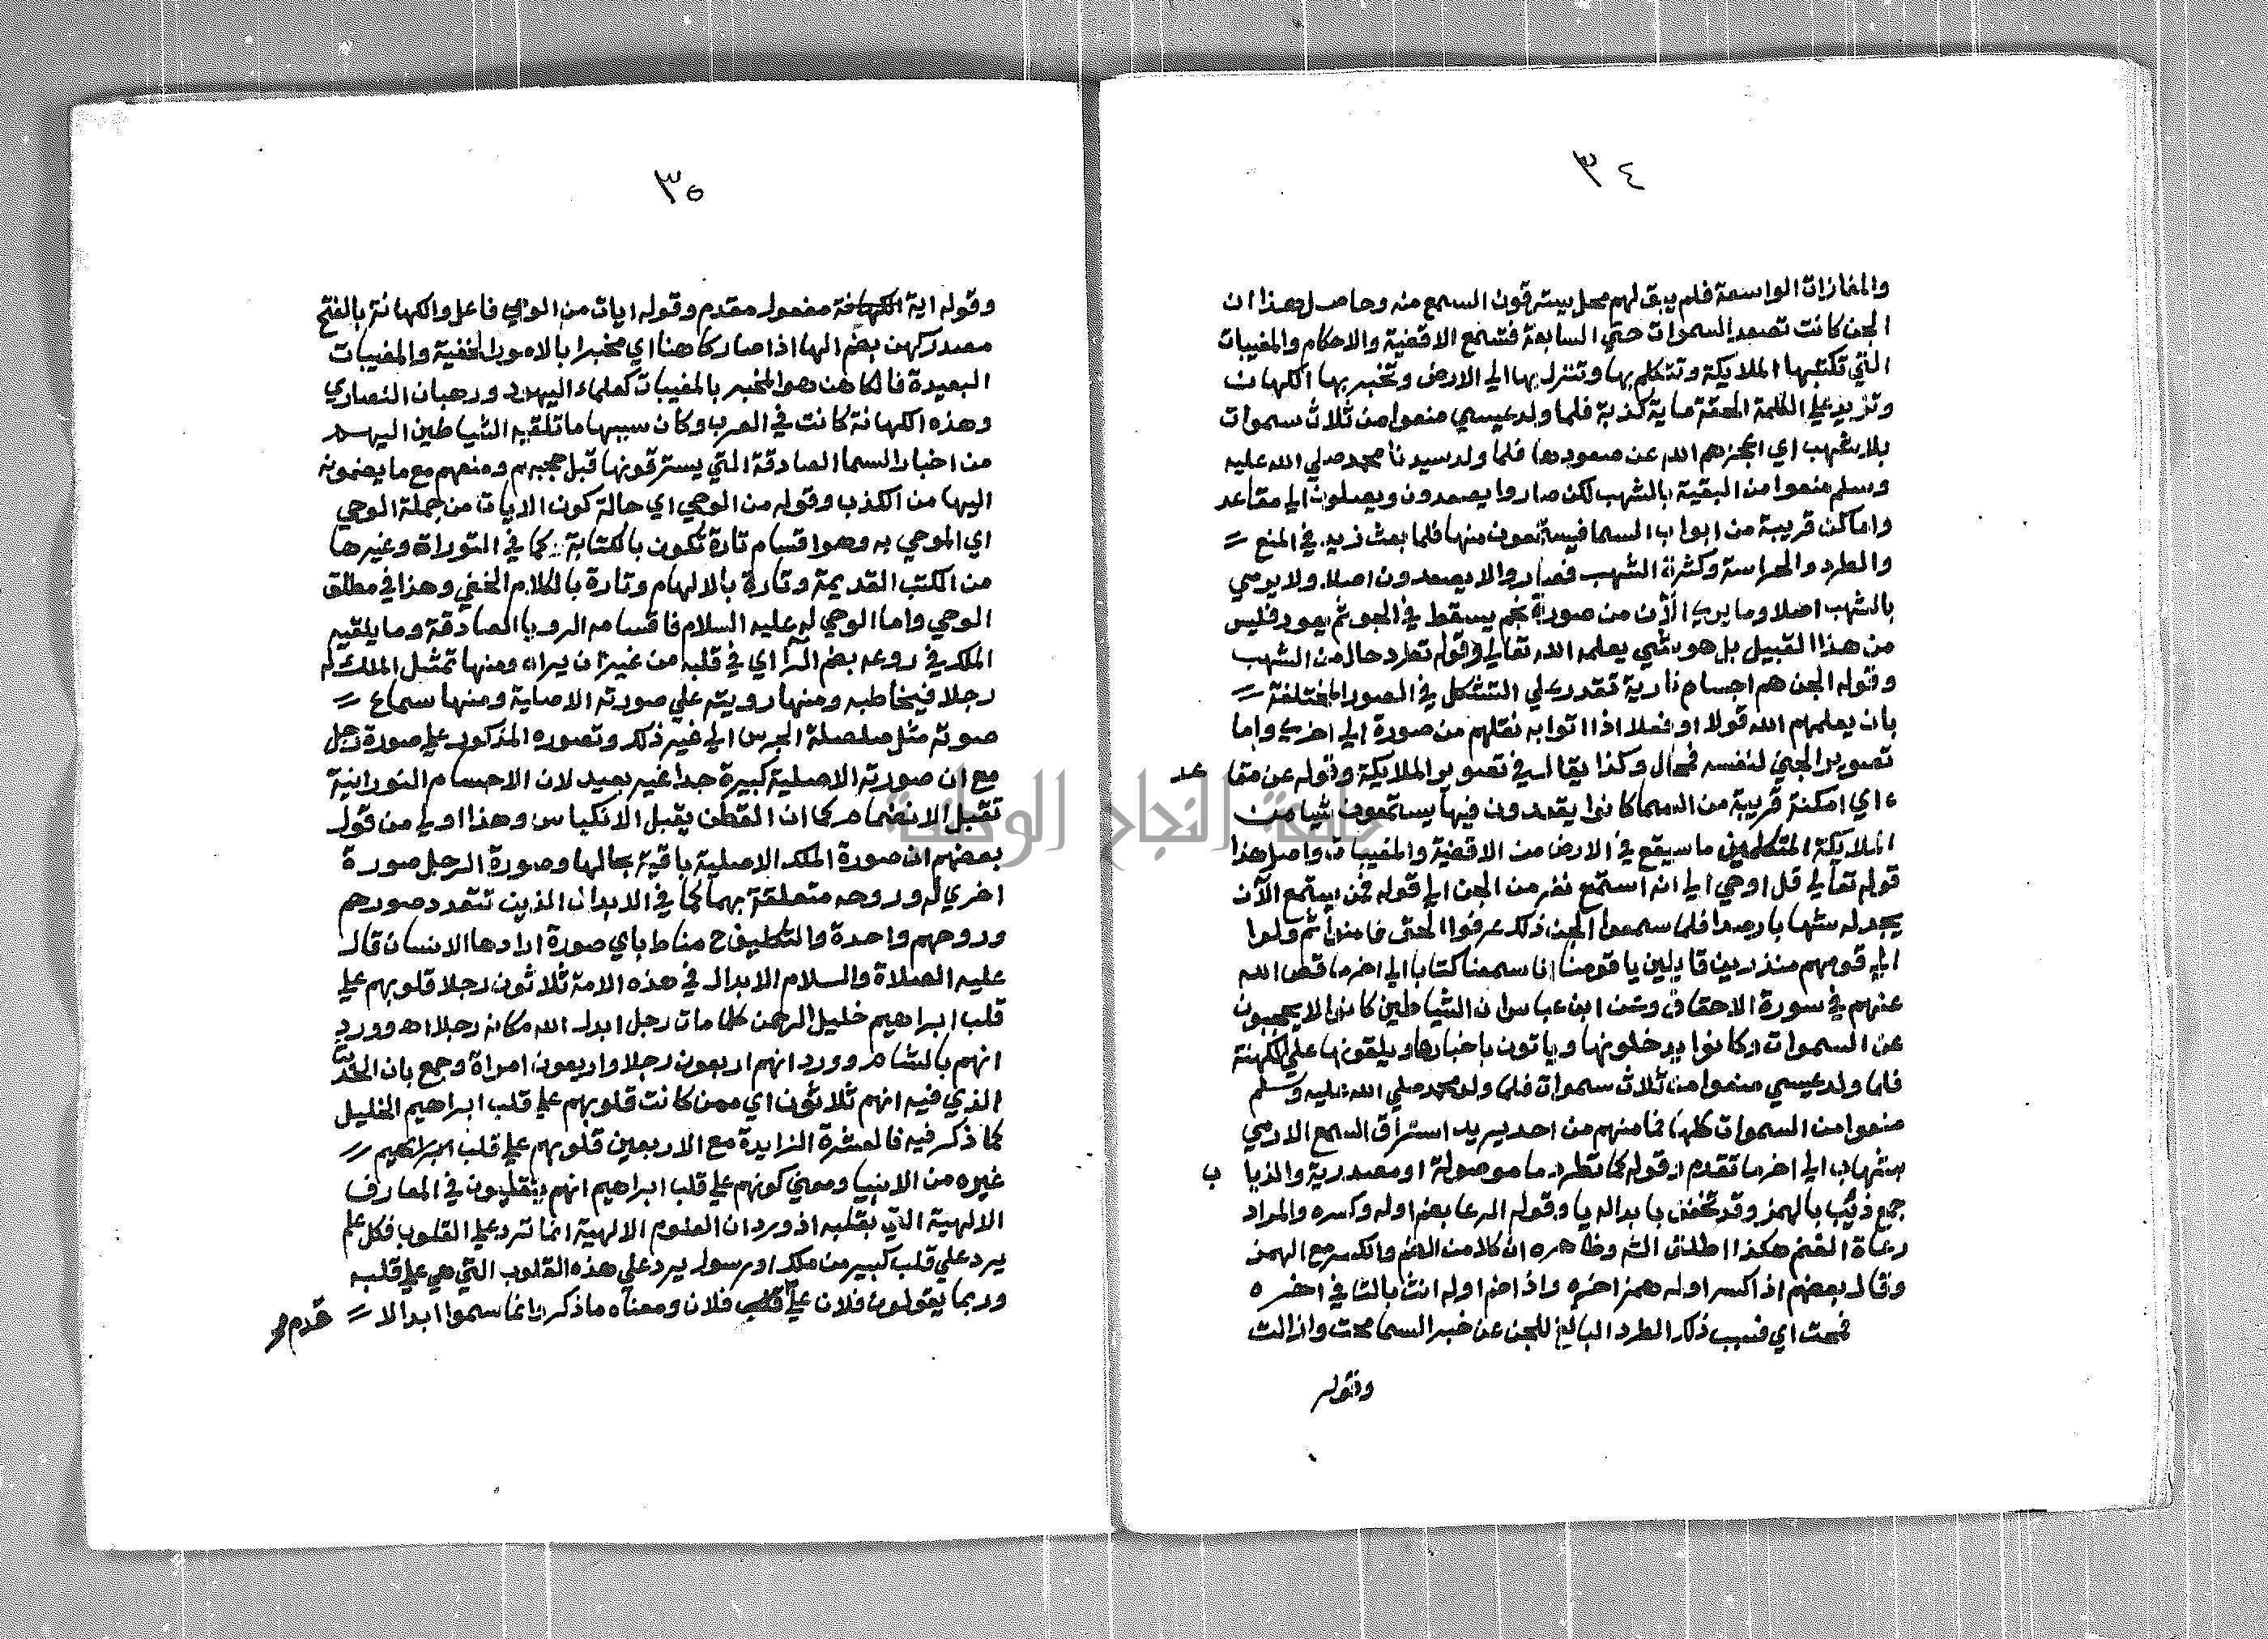 ٣٤
والمغازات الواسعة فلم يبق لهم محل يسترقون السمع منه وحاصل هذا ان
الجن كانت تصعد السموات حتي السابعة فتسمع الاقضية والاحكام والمغيبات
التي تكتبها الملايكة وتتكلم بها وتنزل بها الي الارض وتخبر بها الكهان
وتزيد علي الكلمة الحقة ماية كذبة فلما ولد عيسي منعوا من ثلاث سموات
بلا شهب اي اعجزهم الله عن صعودها فلما ولد سيدنا محمد صلي الله عليه
وسلم منعوا من البقية بالشهب لكن صاروا يصعدون ويصلون الي مقاعد
واماكن قريبة من ابواب السما فيسمعون منها فلما بعث زيد في المنع
والطرد والحراسة وكثرة الشهب فصاروا لا يصعدون اصلا ولا يرمي
بالشهب اصلا وما يري الآن من صورة نجم يسقط في الجو ثم يعود فليس
من هذا القبيل بل هو شي يعلمه الله تعالي وقوله تطرد حال من الشهب
وقوله الجن هم اجسام نارية تقدر علي التشكل في الصور المختلفة
بان يعلمهم الله قولا او فعلا اذا اتوا به نقلهم من صورة الي اخري واما
تصوير الجني لنفسه فمحال وكذا يقال في تصوير الملايكة وقوله عن مقا عد
اي امكنة قريبة من السما كانوا يقعدون فيها يستمعون شيا من
الملايكة المتكلمين ما سيقع في الارض من الاقضية والمغيبات واصل هذا
قوله تعالي قل اوحي الي انه استمع نفر من الجن الي قوله فمن يستمع الآن
يجد له شهابا رصدا فلما سمعوا الجن ذلك عرفوا الحق فامنوا ثم ولوا
الي قومهم منذرين قايلين يا قومنا انا سمعنا كتابا الي اخر ما قص الله
عنهم في سورة الاحقاف وعن ابن عباس ان الشياطين كانوا لا يحجبون
عن السموات وكانوا يدخلونها وياتون باخبارها ويلقونها علي الكهنة
فلما ولد عيسي منعوا من ثلاث سموات فلما ولد محمد صلي الله عليه وسلم
منعوا من السموات كلها فما منهم من احد يريد استراق السمع الا رمي
بشهاب الي اخر ما تقدم وقوله كما تطرد ما موصولة او مصدرية والذيا ب
جمع ذئب بالهمز وقد تخفف بابداله يا وقوله الرعا بضم اوله وكسره والمراد
رعاة الغنم هكذا اطلق الشر وظاهره ان كلا من الضم والكسر مع الهمز
وقال بعضهم اذا كسر اوله همز اخره واذا ضم اوله انث بالتا في اخره
فمحت اي فسبب ذلك الطرد البالغ للجن عن خبر السما محت وازالت
وقوله
٣٥
وقوله اية الكهانة مفعول مقدم وقوله ايات من الوحي فاعل والكهانة بالفتح
مصدر كهن بضم الها اذا صار كاهنا اي مخبرا بالامور الخفية والمغيبات
البعيدة فالكاهن هو المخبر بالمغيبات كعلماء اليهود ورهبان النصاري
وهذه الكهانة كانت في العرب وكان سببها ما تلقيه الشياطين اليهم
من اخبار السما الصادقة التي يسترقونها قبل حجبهم ومنعهم مع ما يضمونه
اليها من الكذب وقوله من الوحي اي حالة كون الايات من جملة الوحي
اي الموحي به وهو اقسام تارة تكون بالكتابة كما في التوراة وغيرها
من الكتب القديمة وتارة بالالهام وتارة بالكلام الخفي وهذا في مطلق
الوحي واما الوحي له عليه السلام فاقسامه الرويا الصادقة وما يلقيه
الملك في روعه بضم الرآ اي في قلبه من غير ان يراه ومنها تمثل الملك له
رجلا فيخاطبه ومنها رويته علي صورته الاصلية ومنها سماع
صوته مثل صلصلة الجرس الي غير ذلك وتصوره المذكور علي صورة رجل
مع ان صورته الاصلية كبيرة جدا غير بعيد لان الاجسام النورانية
تقبل الانضمام كما ان القطن يقبل الانكباس وهذا اولي من قول
بعضهم ان صورة الملك الاصلية باقية بحالها وصورة الرجل صورة
اخري له وروحه متعلقة بهما كما في الابدال الذين تتعدد صورهم
وروحهم واحدة والتكليف ح مناط باي صورة ارادها الانسان قال
عليه الصلاة والسلام الابدال في هذه الامة ثلاثون رجلا قلوبهم علي
قلب ابراهيم خليل الرحمن كلما مات رجل ابدل الله مكانه رجلا اه وورد
انهم بالشام وورد انهم اربعون رجلا واربعون امراة وجمع بان الحديث
الذي فيه انهم ثلاثون اي ممن كانت قلوبهم علي قلب ابراهيم الخليل
كما ذكر فيه فالعشرة الزايدة مع الاربعين قلوبهم علي قلب ابراهيم
غيره من الانبيا ومعني كونهم علي قلب ابراهيم انهم يتقلبون في المعارف
الالهية التي بقلبه اذ ورد ان العلوم الالهية انما ترد علي القلوب فكل علم
يرد علي قلب كبير من ملك او رسول يرد علي هذه القلوب التي هي علي قلبه
وربما يقولون فلان علي قلب فلان ومعناه ما ذكر وانما سموا ابدالا
قدم
جامعة النجاح الوطنية